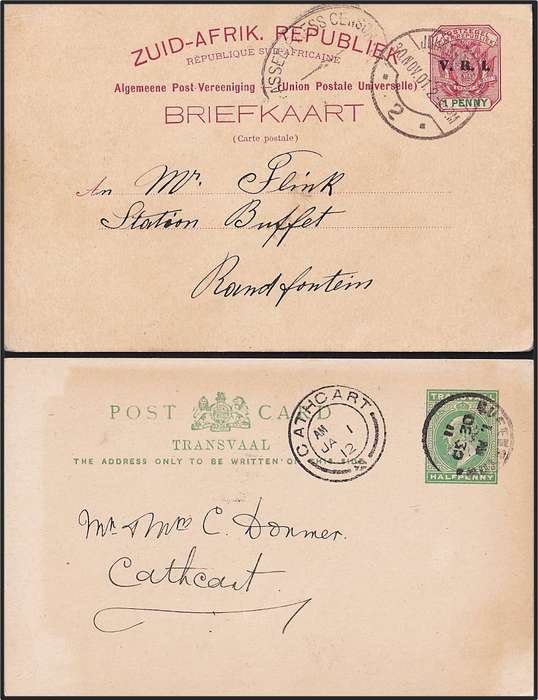 ZUID-AFRIK. REPUBLIEK
RÉPUBLIQUE SUD-AFRICAINE
Algemeene Post-Vereeniging (Union Postale Universelle)
BRIEFKAART
(Carte postale)
PRESS CENSOR
30 NOV. 01
2
V. R. I.
1 PENNY
An Mr. Flink
Station Buffet
Randfontein
POST CARD
TRANSVAAL
THE ADDRESS ONLY TO BE WRITTEN ON THIS SIDE
CATHCART
AM
JA 1
12
TRANSVAAL
HALFPENNY
1 PM
DE 30
11
Mr. & Mrs C. Donmer.
Cathcart.